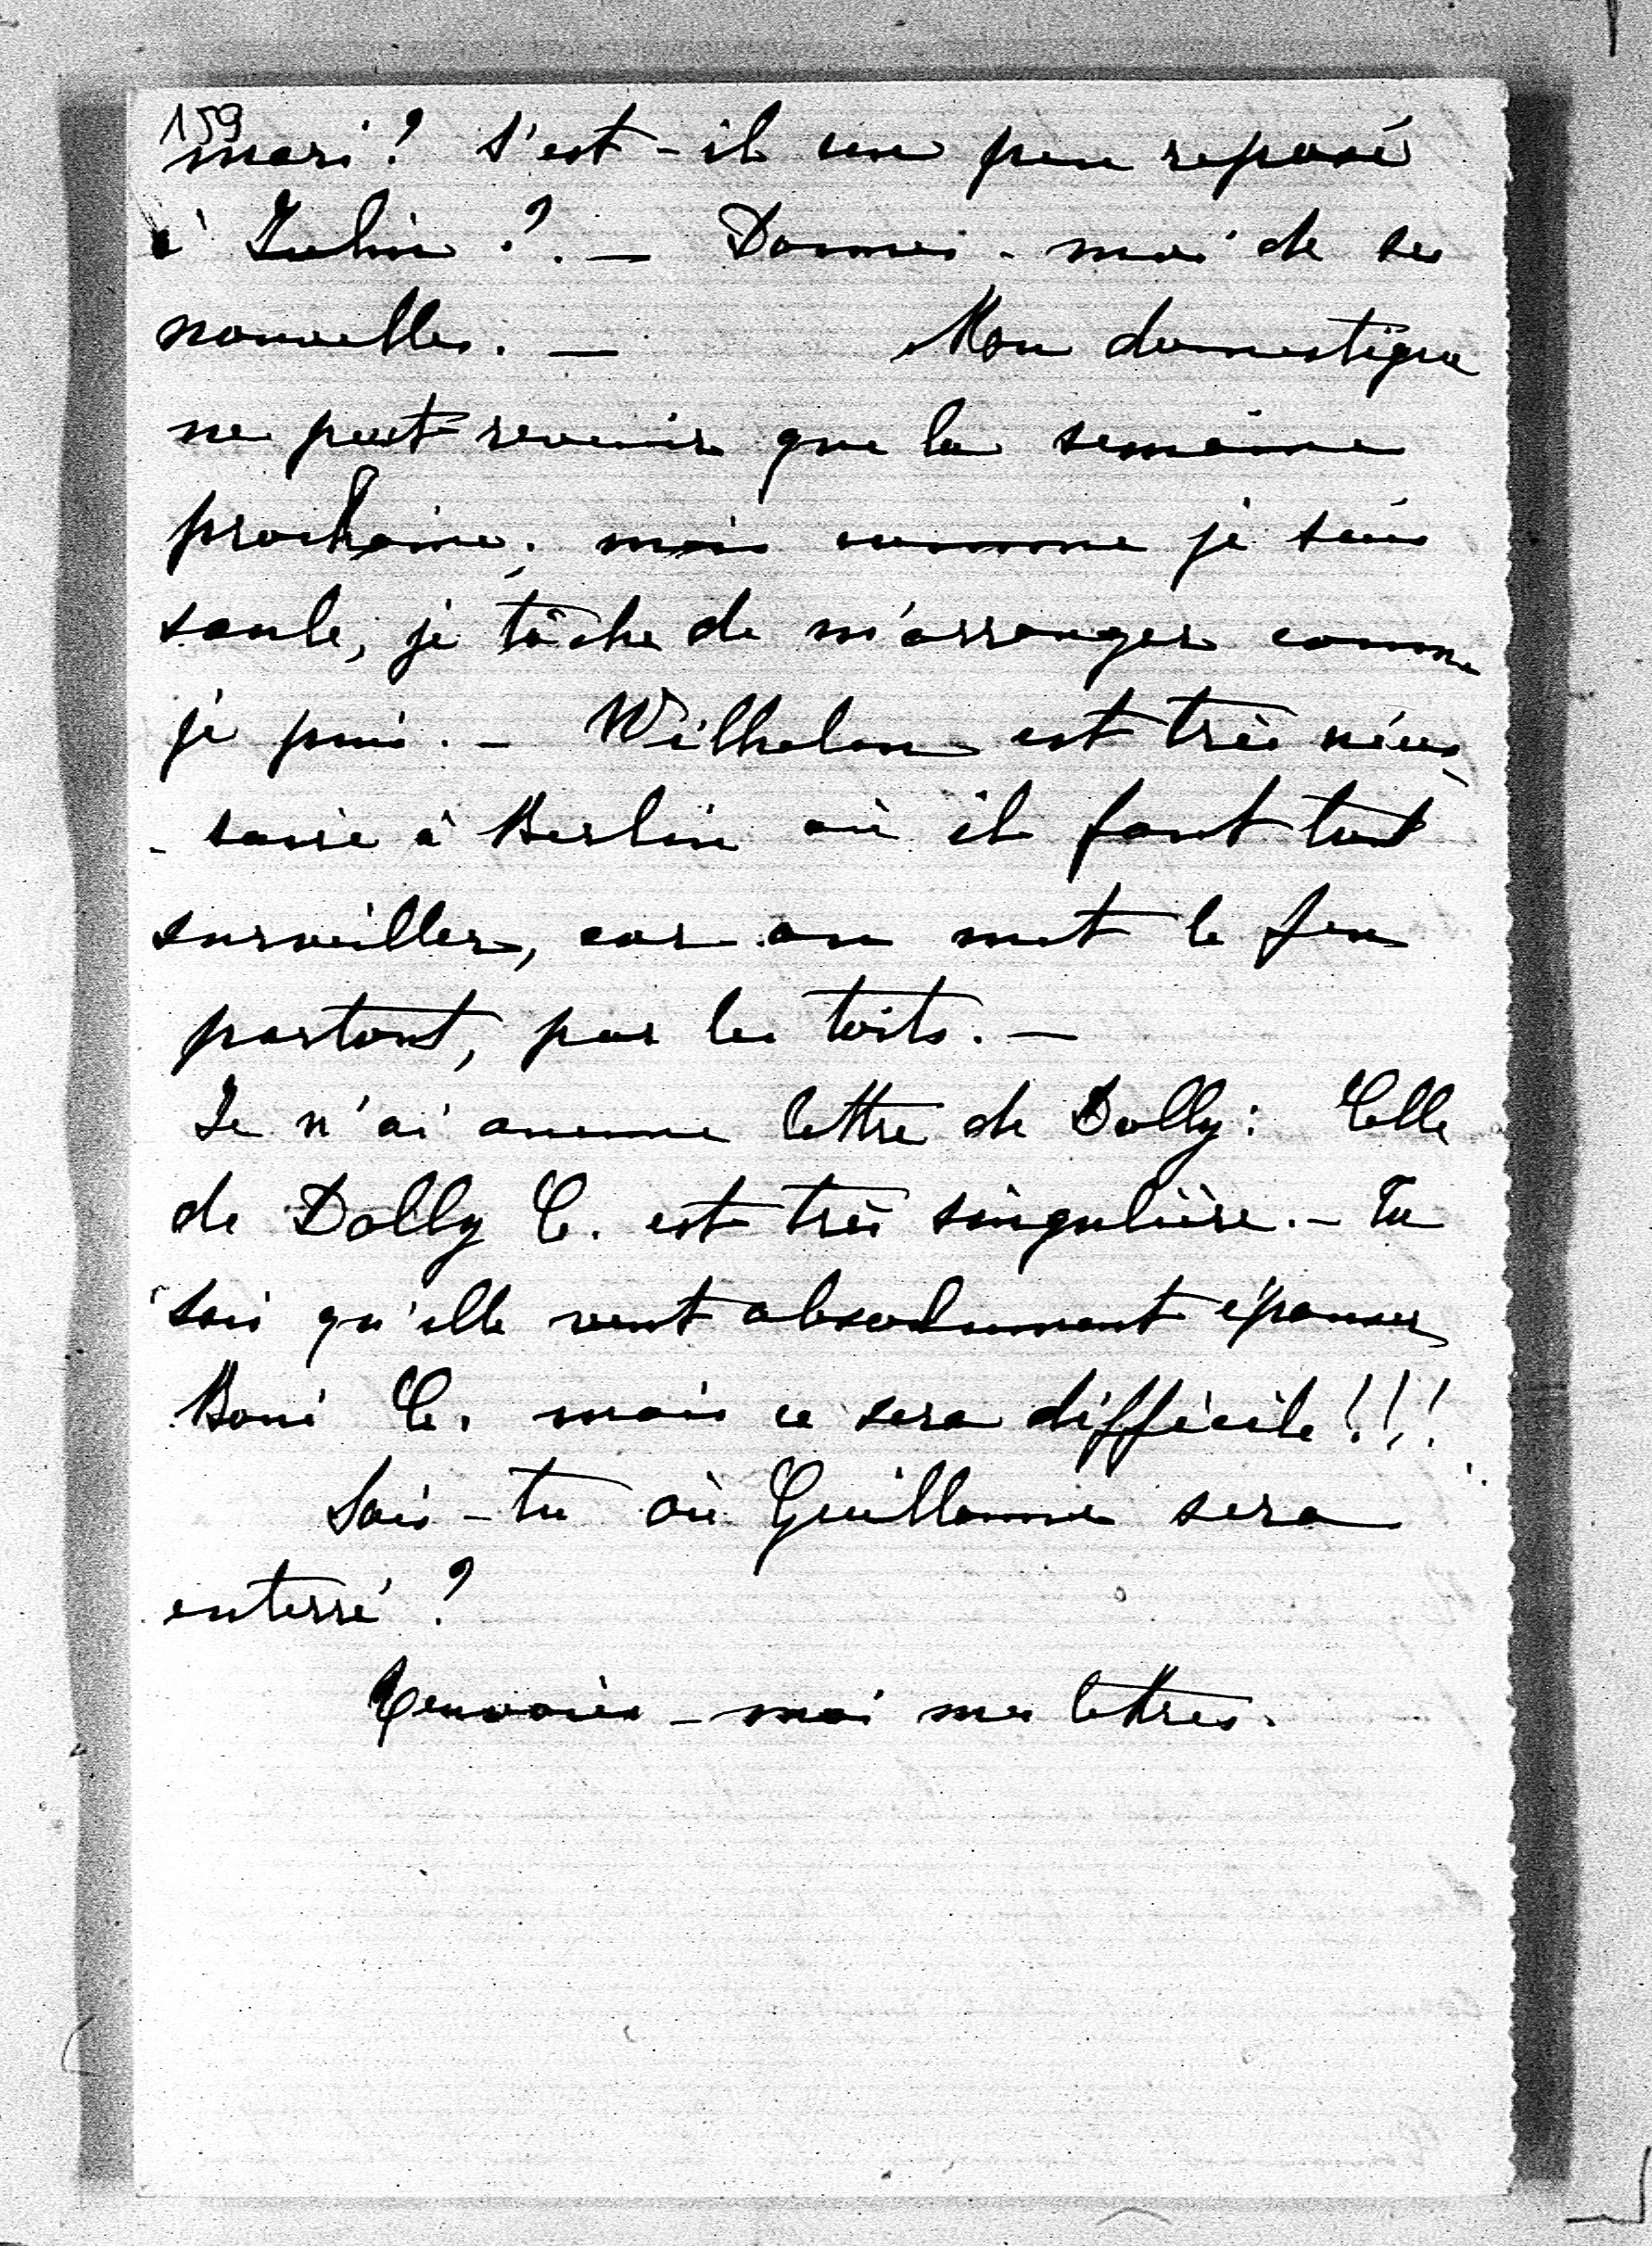 159
mari? S'est-il un peu reposé
à Iulin?. — Donnes-moi de ses
nouvelles. — Mon domestique
ne peut revenir que la semaine
prochaine; mais comme je suis
seule, je tâche de m'arranger comme
je puis. — Wilhelm est très néces
-saire à Berlin où il faut tout
surveiller, car on met le feu
partout, par les toits. —
Je n'ai aucune lettre de Dolly: Celle
de Dolly C. est très singulière. — Tu
sais qu'elle veut absolument épouser
Boni C. mais ce sera difficile!!!
Sais-tu où Guillaume sera
enterré?
Renvoies-moi mes lettres.